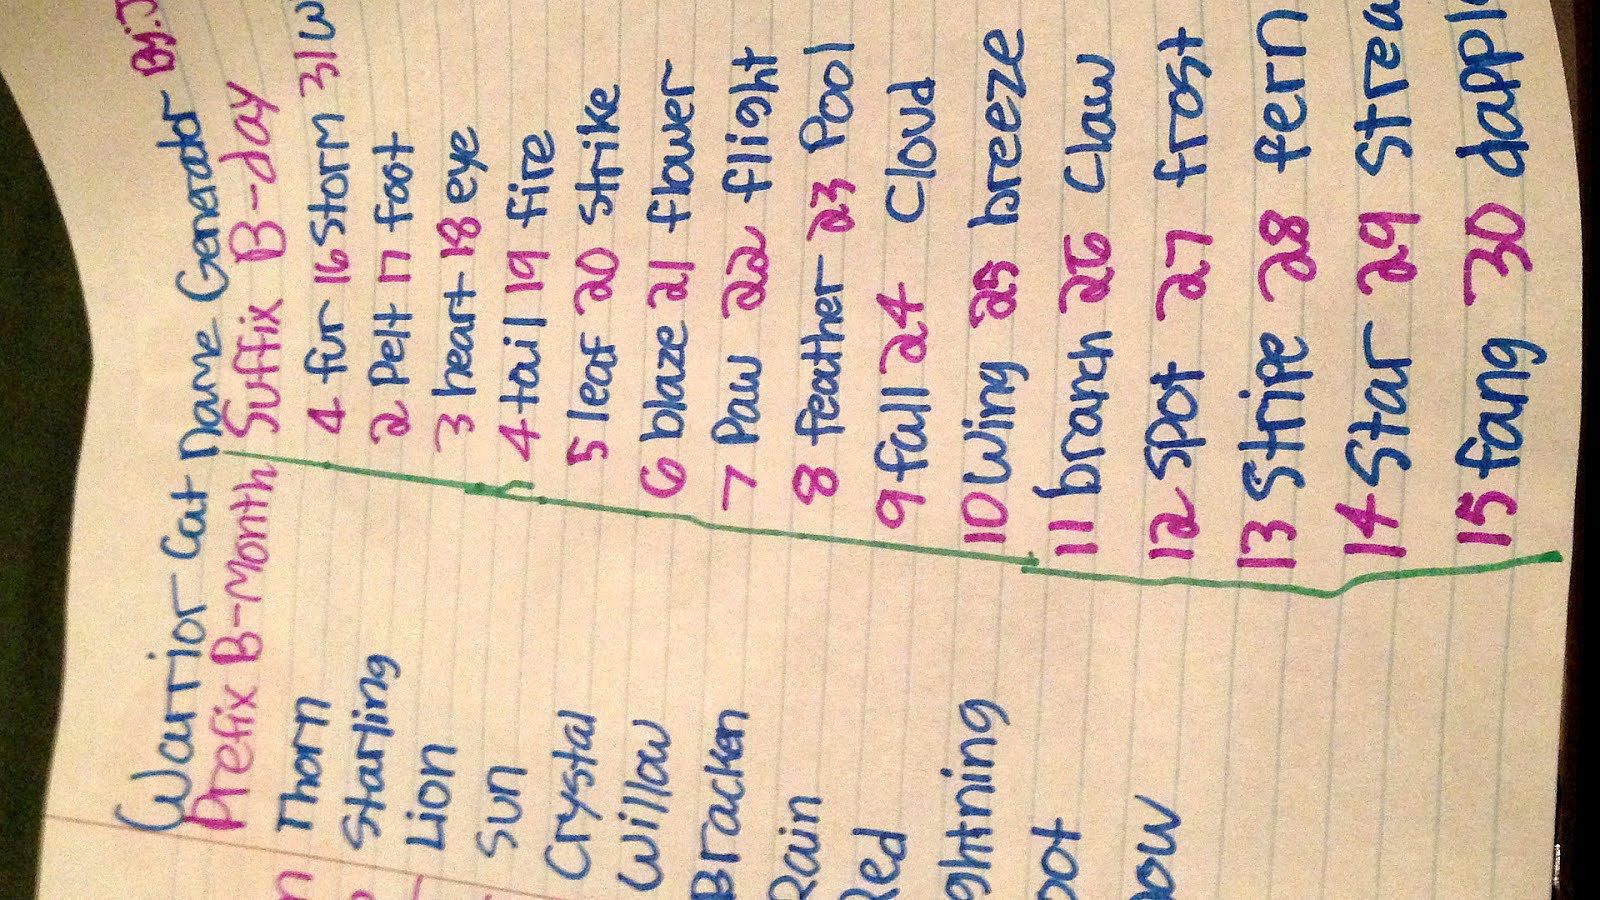 Warrior Cat Name Generator By: J
Prefix B-month Suffix B-day
Thorn 4 fur 16 Storm 31 W
Starling 2 Pelt 17 foot
Lion 3 heart 18 eye
Sun 4 tail 19 fire
Crystal 5 leaf 20 Strike
Willow 6 blaze 21 flower
Bracken 7 Paw 22 flight
Rain 8 feather 23 Pool
Red 9 fall 24 Cloud
ghtning 10 Wing 25 breeze
pot 11 branch 26 Claw
now 12 Spot 27 frost
13 Stripe 28 fern
14 Star 29 Strea
15 fang 30 dappl